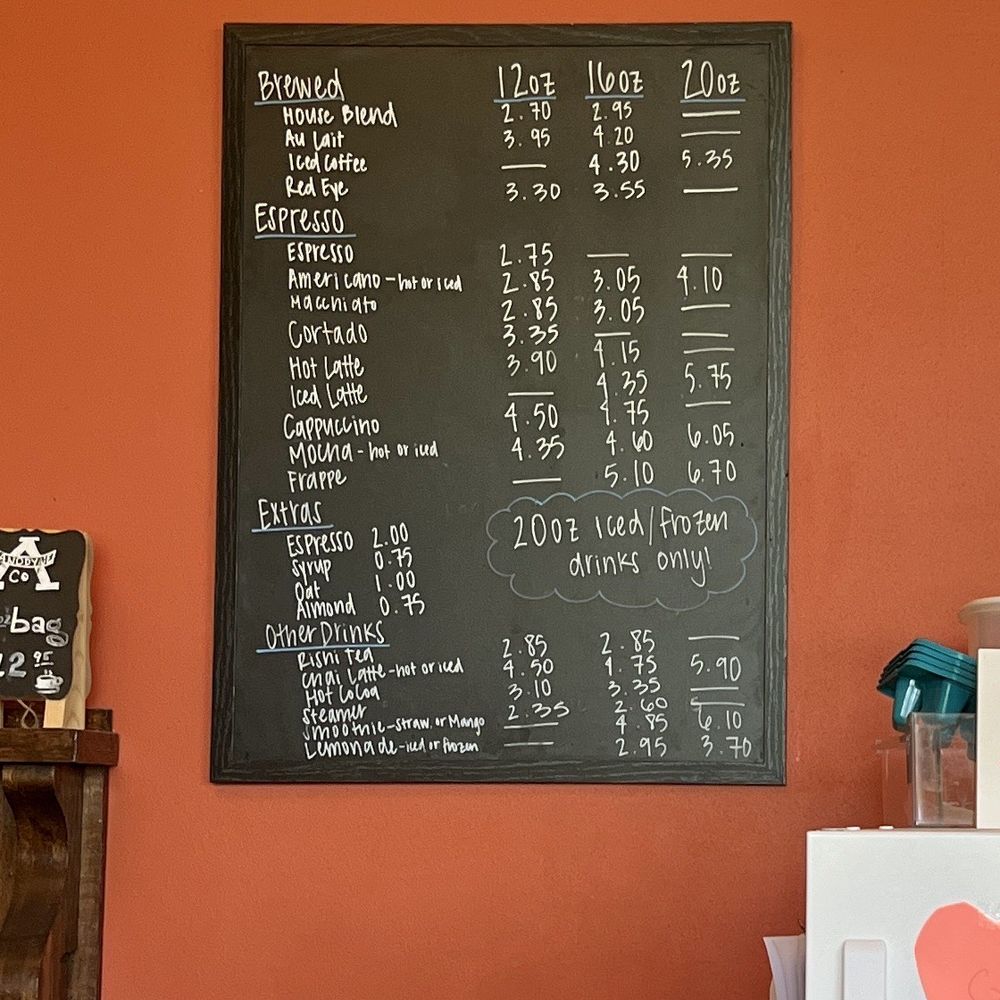 Brewed 12oz 16oz 20oz
House Blend 2.70 2.95 —
Au Lait 3.95 4.20 —
Iced Coffee — 4.30 5.35
Red Eye 3.30 3.55 —
Espresso
Espresso 2.75 — —
Americano - hot or iced 2.85 3.05 4.10
Macchiato 2.85 3.05 —
Cortado 3.35 — —
Hot Latte 3.90 4.15 —
Iced Latte — 4.35 5.75
Cappuccino 4.50 4.75 —
Mocha - hot or iced 4.35 4.60 6.05
Frappe — 5.10 6.70
Extras
Espresso 2.00
Syrup 0.75
Oat 1.00
Almond 0.75
20oz Iced/frozen
drinks only!
Other Drinks
Rishi Tea 2.85 2.85 —
Chai Latte - hot or iced 4.50 4.75 5.90
Hot Cocoa 3.10 3.35 —
Steamer 2.35 2.60 —
Smoothie - straw. or Mango — 4.85 6.10
Lemonade - iced or frozen — 2.95 3.70
A
Co
bag
2 95